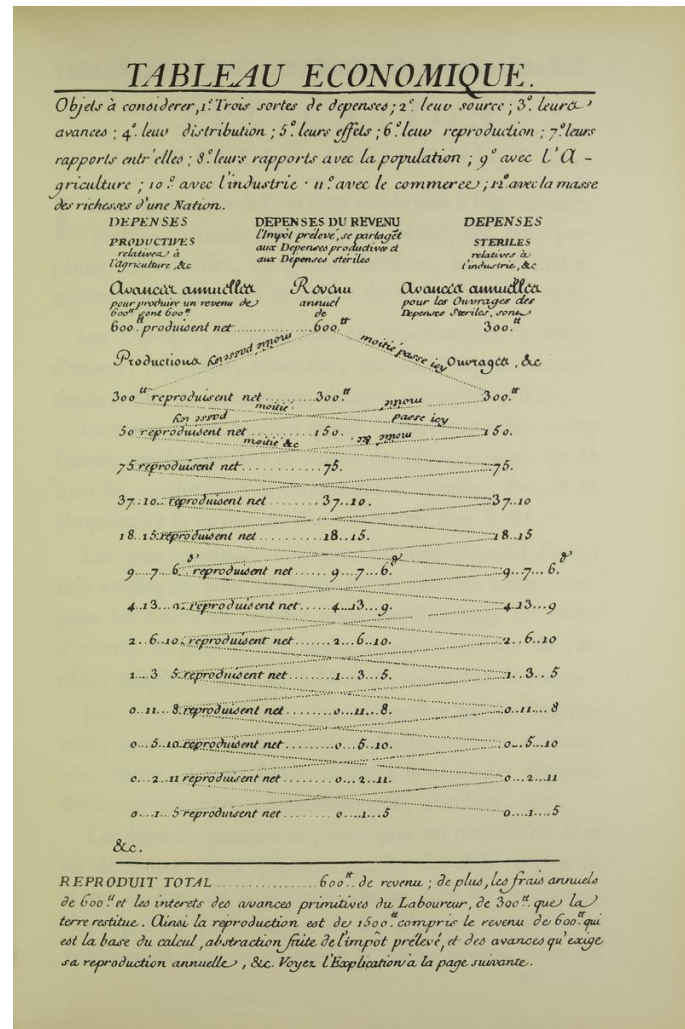 TABLEAU ECONOMIQUE.
Objets à considerer, 1.º Trois sortes de depenses; 2.º leur source; 3.º leurs
avances; 4.º leur distribution; 5.º leurs effets; 6.º leur reproduction; 7.º leurs
rapports entr'elles; 8.º leurs rapports avec la population; 9.º avec l'A-
griculture; 10.º avec l'industrie. 11.º avec le commerce; 12.º avec la masse
des richesses d'une Nation.
DEPENSES DEPENSES DU REVENU DEPENSES
PRODUCTIVES l'Impôt prélevé, se partagẽt STERILES
relatives à aux Depenses productives et relatives à
l'agriculture, &c aux Dépenses stériles l'industrie, &c
Avances annuelles Revenu Avances annuelles
pour produire un revenu de annuel pour les Ouvrages des
600.tt sont 600.tt de Depenses Steriles, sont
600. produisent net..............600.tt 300.tt
moitié passe icy moitié passe icy
Productions Ouvrages, &c
300.tt reproduisent net.......300.tt 300.tt
moitié. moitié
passe icy passe icy
50 reproduisent net..........150. 150.
moitié &c moitié &c.
75 reproduisent net...........75. 75.
37..10.. reproduisent net........37..10. 37..10
18..15 reproduisent net.........18..15. 18..15
9...7...6.d reproduisent net.....9...7...6.d 9...7...6.d
4..13...9.. reproduisent net.....4...13...9. 4..13...9
2..6..10.. reproduisent net......2...6..10. 2..6..10
1....3 5. reproduisent net.......1...3...5. 1..3..5
0..11...8. reproduisent net.......0...11...8. 0..11....8
0...5..10 reproduisent net........0...5..10. 0...5...10
0....2..11 reproduisent net........0...2..11. 0...2...11
0....1...5 reproduisent net ........0....1....5 0....1....5
&c.
REPRODUIT TOTAL ................600.tt de revenu; de plus, les frais annuels
de 600.tt et les interets des avances primitives du Laboureur, de 300.tt que la
terre restitue. Ainsi la reproduction est de 1500.tt compris le revenu de 600.tt qui
est la base du calcul, abstraction faite de l'impôt prélevé, et des avances qu'exige
sa reproduction annuelle, &c. Voyez l'Explication à la page suivante.